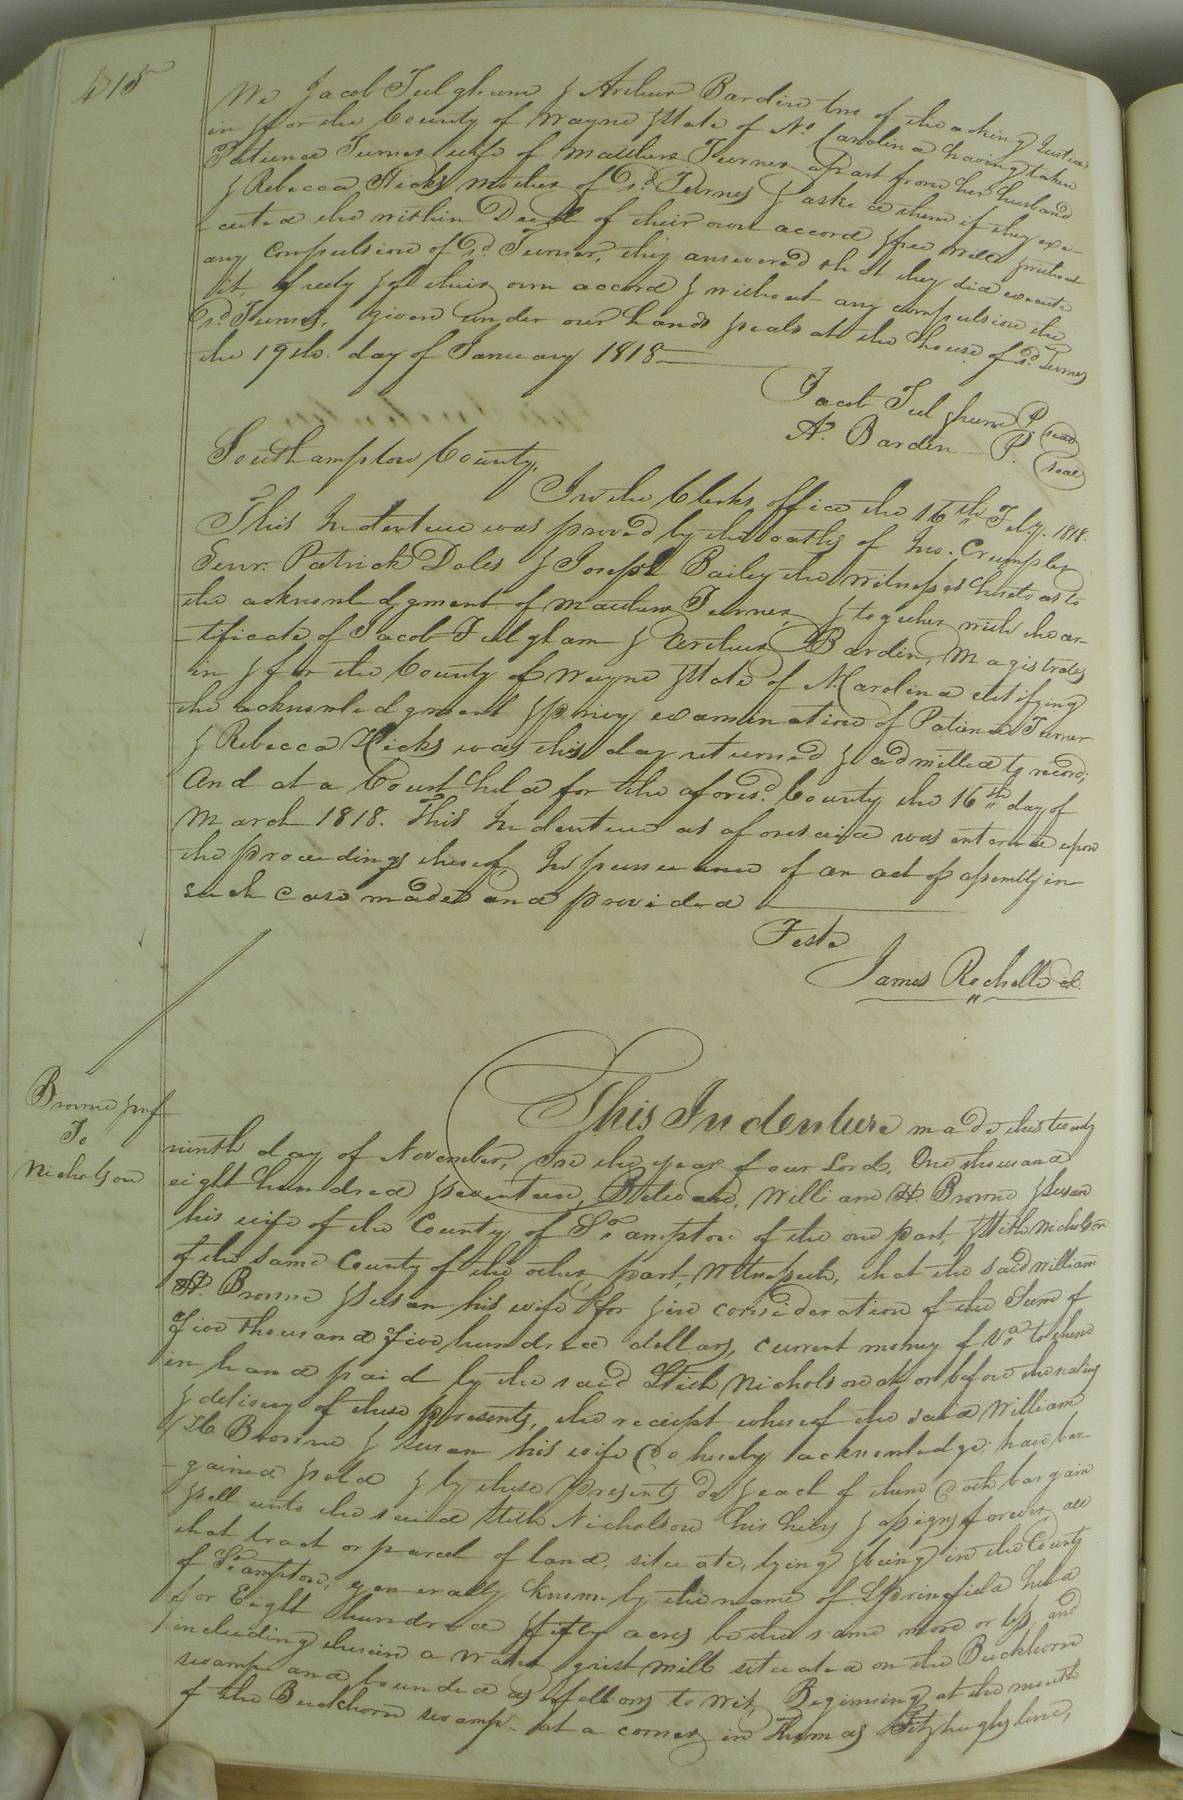 415
We Jacob Fulghum & Arthur Bardin two of the acting Justices
in & for the County of Wayne & State of No. Carolina having taken
Patience Turner wife of Matthew Turner apart from her husband
& Rebecca Hicks mother of sd. Turner & asked them if they exe-
cuted the within Deed of their own accord & free will & without
any compulsion of sd. Turner, they answered that they did execute
it freely & of their own accord & without any compulsion the
sd. Turner. Given under our hands & seals at the house of sd. Turner
the 19th. day of January 1818
Jacob Fulghum P. (seal)
Ar. Barden P. (seal)
Southampton County,
In the Clerks office the 16th Feby. 1818.
This Indenture was proved by the oaths of Jno. Crumpler
Senr. Patrick Doles & Joseph Bailey the witnesses hereto as to
the acknowledgment of Matthew Turner, & together with the cer-
tificate of Jacob Fulgham & Arthur Bardin, Magistrates
in & for the County of Wayne & State of N. Carolina certifying
the acknowledgment & privy examination of Patience Turner
& Rebecca Hicks was this day returned & admitted to record;
And at a Court held for the aforesd. County the 16th day of
March 1818. This Indenture as aforesaid was entered upon
the proceedings thereof, In pursuance of an act of assembly in
such case made and provided
Teste
James Rochelle cl.
Browne & wf
To
Nicholson
This Indenture made this twenty
ninth day of November, In the year of our Lord, One thousand
eight hundred & seventeen, Between, William H. Browne & Susan
his wife of the County of So.ampton of the one part, & Stith Nicholson
of the same County of the other part, Witnesseth, that the said William
H. Browne & Susan his wife for & in consideration of the Sum of
Five thousand Five hundred dollars, current money of Va. to them
in hand paid by the said Stith Nicholson at or before the sealing
& delivery of these presents, the receipt whereof the said William
H. Browne & Susan his wife do hereby acknowledge; have bar-
gained & sold & by these presents do & each of them doth bargain
& sell unto the said Stith Nicholson his heirs & assigns forever, all
that tract or parcel of land, situate, lying & being in the County
of So.ampton, generally known by the name of Springfield held
for Eight hundred & fifty acres be the same more or less, and
including therein a water grist mill situated on the Buckhorn
swamp and bounded as follows to wit, Beginning at the mouth
of the Buckhorn swamp at a corner in Thomas Fitzhughs line,